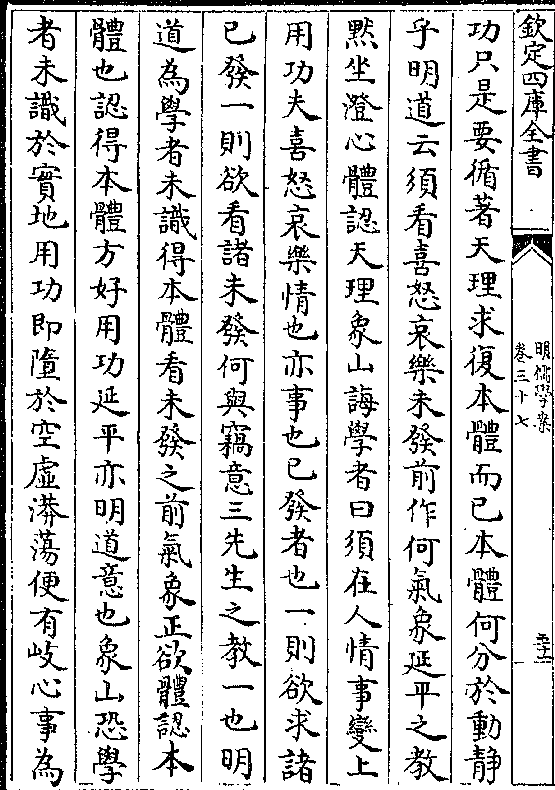 欽定四庫全書
明儒學案
卷三十七
功只是要循著天理求復本體而已本體何分於動靜
乎明道云須看喜怒哀樂未發前作何氣象延平之教
黙坐澄心體認天理象山誨學者曰須在人情事變上
用功夫喜怒哀樂情也亦事也已發者也一則欲求諸
已發一則欲看諸未發何與竊意三先生之教一也明
道為學者未識得本體看未發之前氣象正欲體認本
體也認得本體方好用功延平亦明道意也象山恐學
者未識於實地用功即墮於空虛漭蕩便有岐心事為